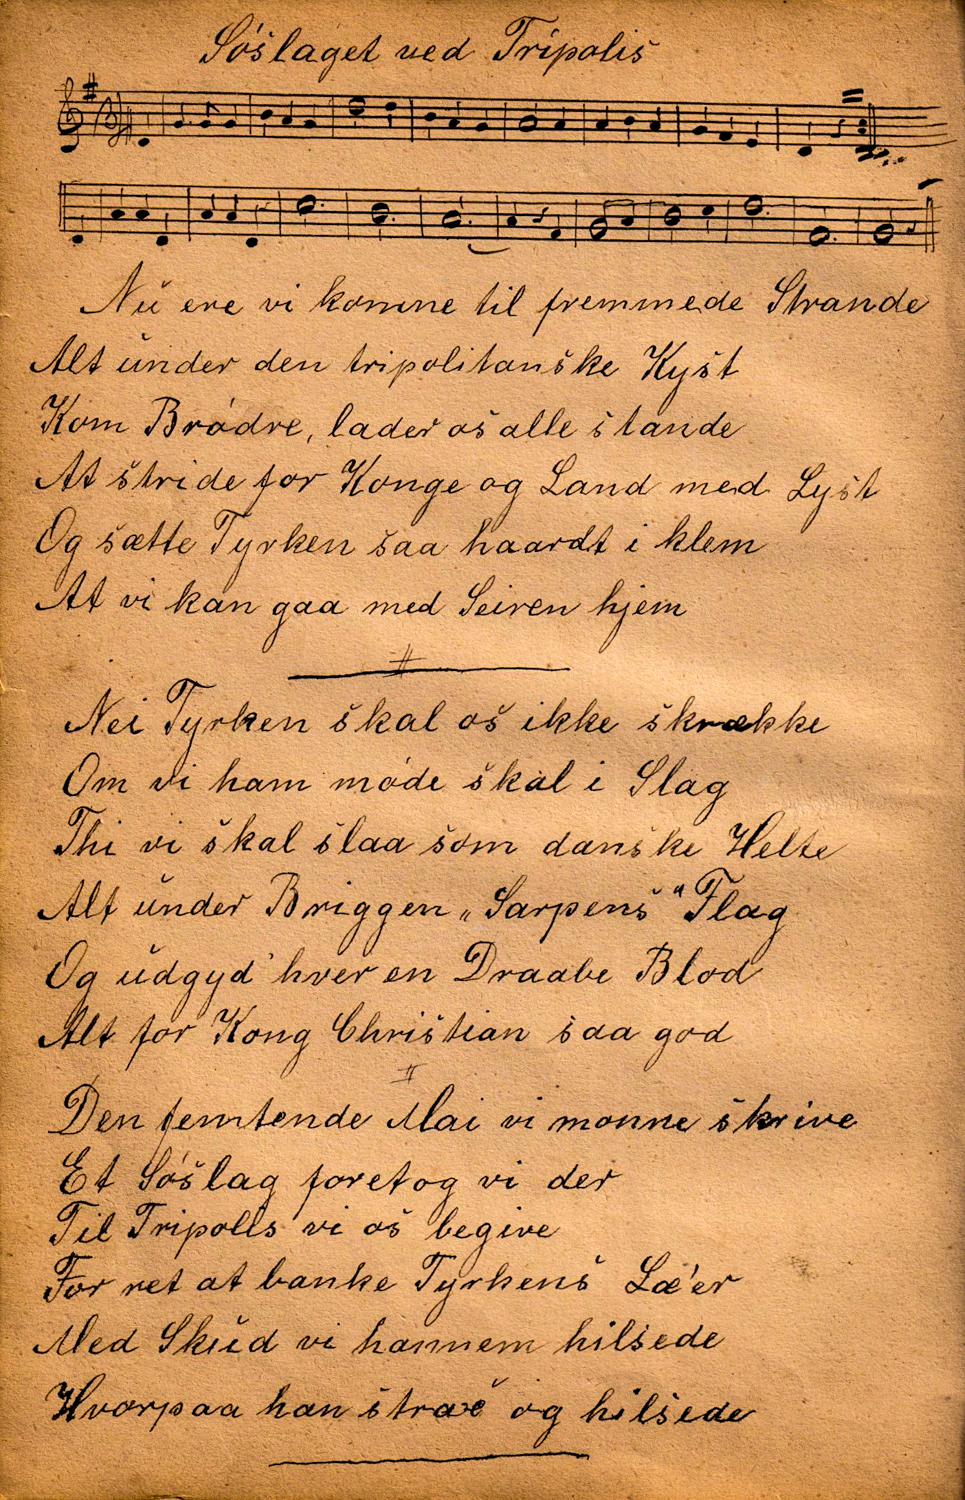 Söslaget ved Tripolis
Nu ere vi komne til fremmede Strande
Alt under den tripolitanske Kyst
Kom Brödre, lader os alle stande
At stride for Konge og Land med Lyst
Og sætte Tyrken saa haardt i klem
At vi kan gaa med Seiren hjem
Nei Tyrken skal os ikke skrække
Om vi ham möde skal i Slag
Thi vi skal slaa som danske Helte
Alt under Briggen „Sarpens" Flag
Og udgyd' hver en Draabe Blod
Alt for Kong Christian saa god
Den femtende Mai vi monne skrive
Et Söslag foretog vi der
Til Tripolis vi os begive
For ret at banke Tyrkens Læ'er
Med Skud vi hannem hilsede
Hvorpaa han strax og hilsede